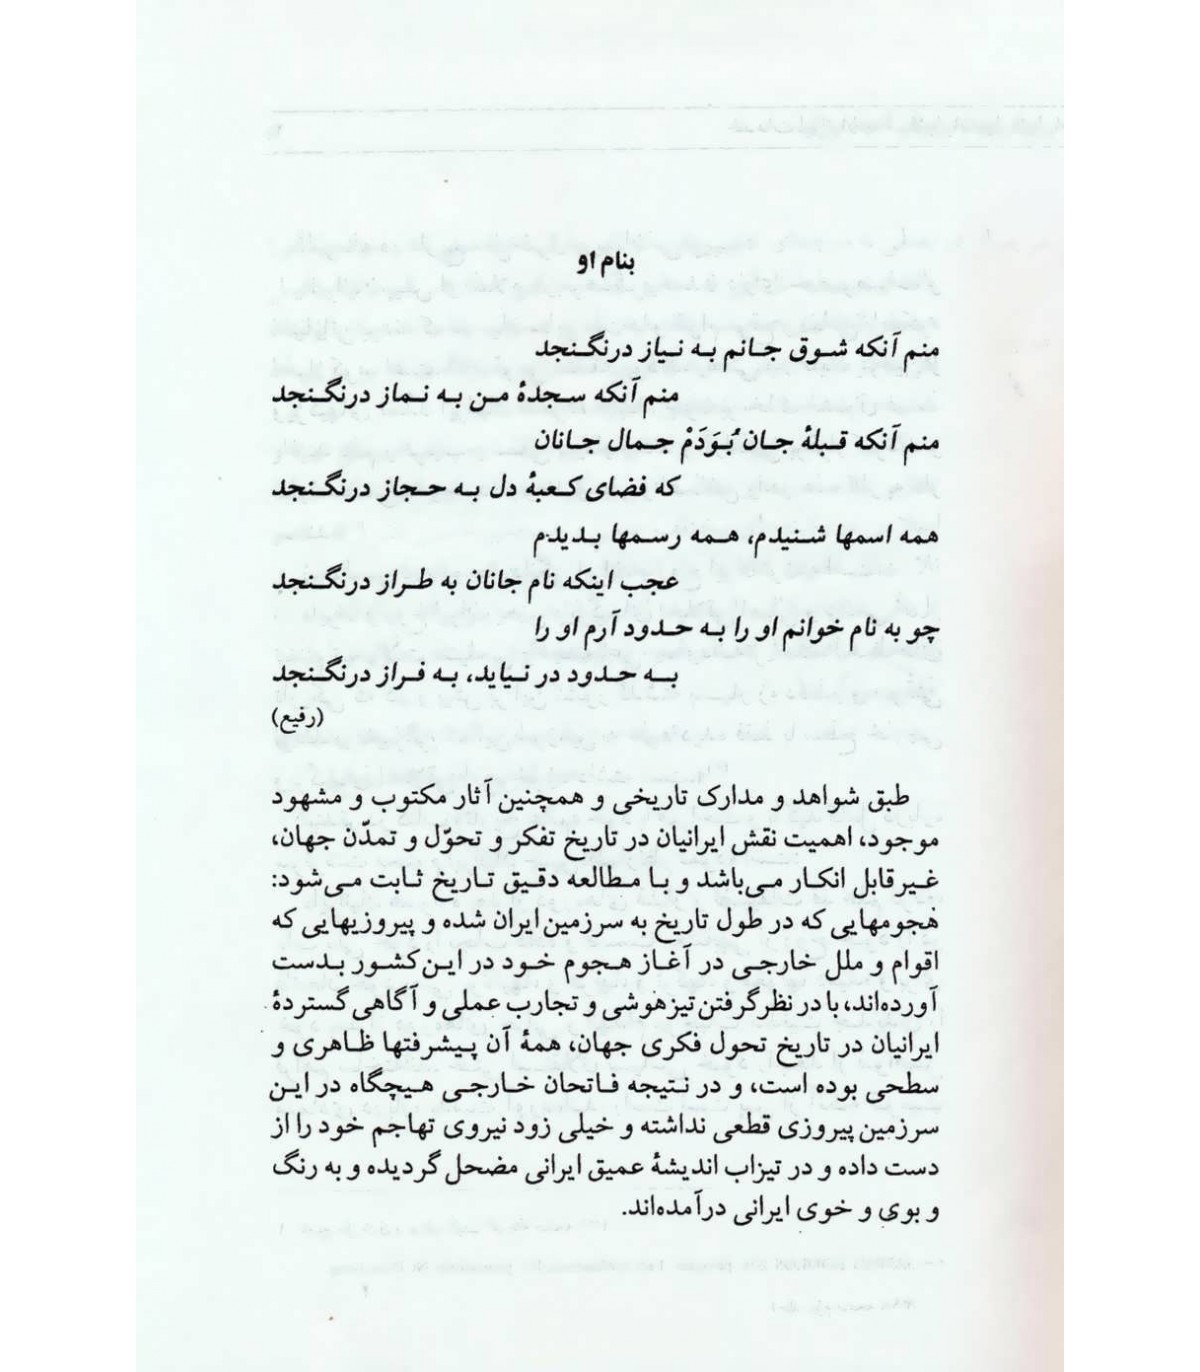 بنام او
منم آنکه شوق جانم به نیاز درنگنجد
منم آنکه سجدهٔ من به نماز درنگنجد
منم آنکه قبلهٔ جان بُوَدَمْ جمال جانان
که فضای کعبهٔ دل به حجاز درنگنجد
همه اسمها شنیدم، همه رسمها بدیدم
عجب اینکه نام جانان به طراز درنگنجد
چو به نام خوانم او را به حدود آرم او را
به حدود در نیاید، به فراز درنگنجد
(رفیع)
طبق شواهد و مدارک تاریخی و همچنین آثار مکتوب و مشهود
موجود، اهمیت نقش ایرانیان در تاریخ تفکر و تحوّل و تمدّن جهان،
غیرقابل انکار می‌باشد و با مطالعه دقیق تاریخ ثابت می‌شود:
هجومهایی که در طول تاریخ به سرزمین ایران شده و پیروزیهایی که
اقوام و ملل خارجی در آغاز هجوم خود در این کشور بدست
آورده‌اند، با در نظر گرفتن تیزهوشی و تجارب عملی و آگاهی گستردهٔ
ایرانیان در تاریخ تحول فکری جهان، همهٔ آن پیشرفتها ظاهری و
سطحی بوده است، و در نتیجه فاتحان خارجی هیچگاه در این
سرزمین پیروزی قطعی نداشته و خیلی زود نیروی تهاجم خود را از
دست داده و در تیزاب اندیشهٔ عمیق ایرانی مضحل گردیده و به رنگ
و بوی و خوی ایرانی درآمده‌اند.